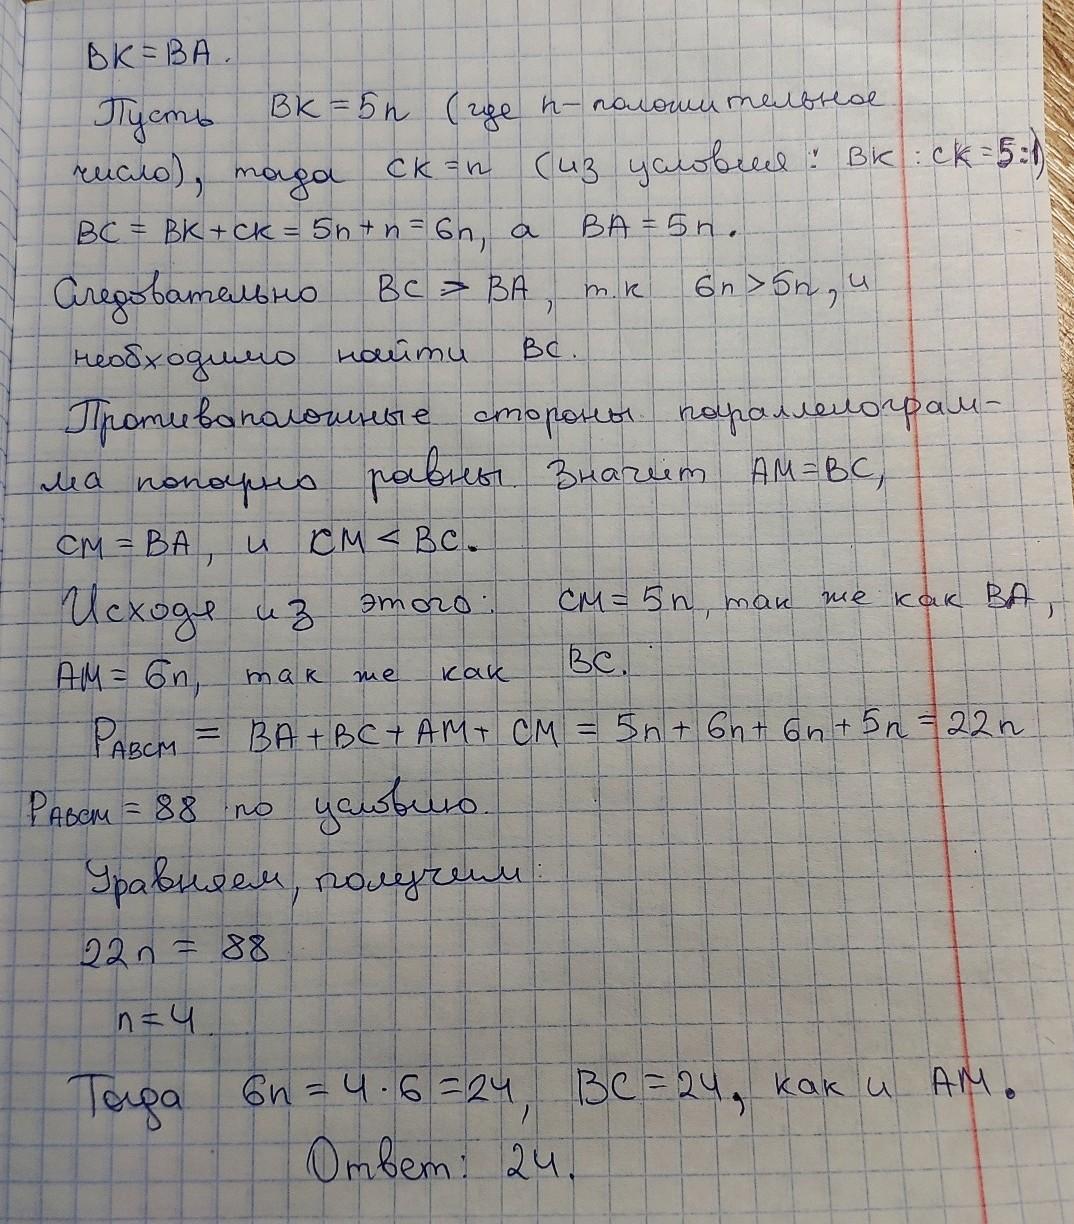 BK = BA.
Пусть BK = 5n (где n - положительное
число), тогда CK = n (из условия: BK : CK = 5:1)
BC = BK + CK = 5n + n = 6n, а BA = 5n.
Следовательно BC > BA, т.к 6n > 5n, и
необходимо найти BC.
Противоположные стороны параллелограм-
ма попарно равны. Значит AM = BC,
CM = BA, и CM < BC.
Исходя из этого: CM = 5n, так же как BA,
AM = 6n, так же как BC.
PABCM = BA + BC + AM + CM = 5n + 6n + 6n + 5n = 22n
PABCM = 88 по условию.
Уравняем, получим:
22n = 88
n = 4.
Тогда 6n = 4 · 6 = 24, BC = 24, как и AM.
Ответ: 24.